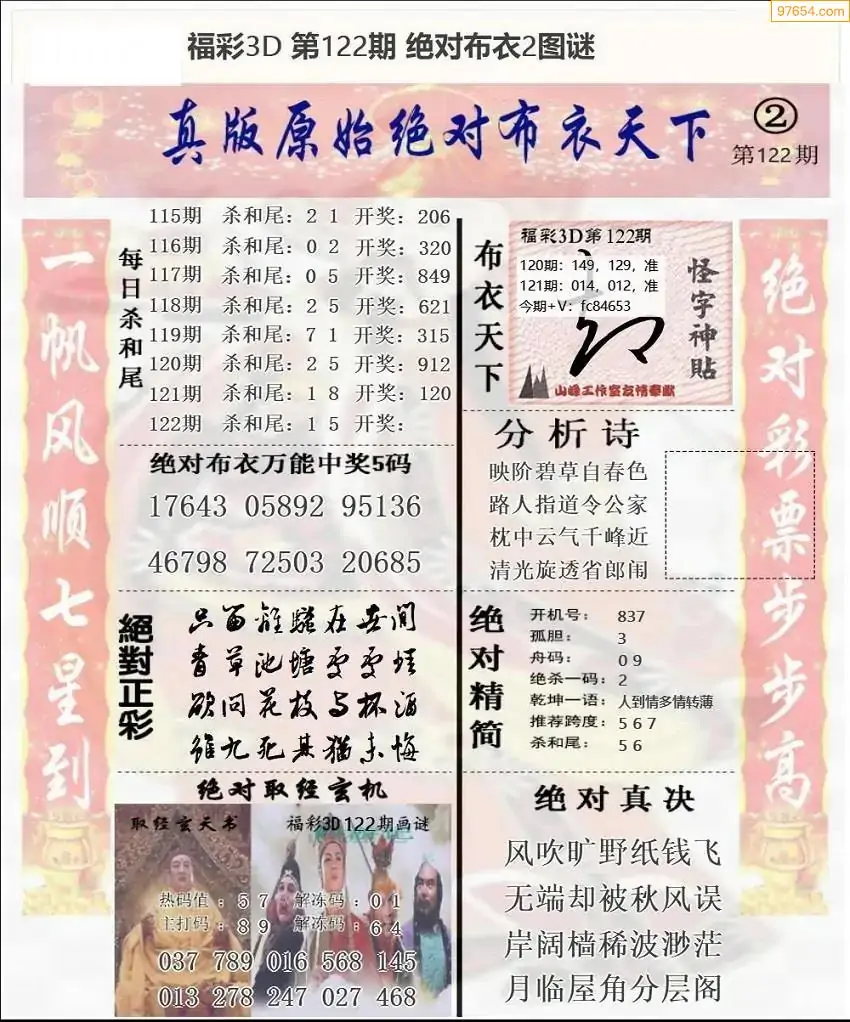 97654.com
福彩3D 第122期 绝对布衣2图谜
真版原始绝对布衣天下
②
第122期
一帆风顺七星到
每日杀和尾
115期 杀和尾：2 1 开奖：206
116期 杀和尾：0 2 开奖：320
117期 杀和尾：0 5 开奖：849
118期 杀和尾：2 5 开奖：621
119期 杀和尾：7 1 开奖：315
120期 杀和尾：2 5 开奖：912
121期 杀和尾：1 8 开奖：120
122期 杀和尾：1 5 开奖：
绝对布衣万能中奖5码
17643 05892 95136
46798 72503 20685
絕對正彩
只留離騷在世间
青草池塘处处
欲问花枝与杯酒
虽九死其犹未悔
绝对取经玄机
取经玄天书
福彩3D122期画谜
热码值：5 7 解冻码：0 1
主打码：8 9 解冻码：6 4
037 789 016 568 145
013 278 247 027 468
布衣天下
福彩3D第122期
120期：149，129，准
121期：014，012，准
今期+V：fc84653
怪字神贴
山峰工作室友情奉献
分析诗
映阶碧草自春色
路人指道令公家
枕中云气千峰近
清光旋透省郎闱
绝对精简
开机号： 837
孤胆： 3
舟码： 0 9
绝杀一码：2
乾坤一语：人到情多情转薄
推荐跨度：5 6 7
杀和尾： 5 6
绝对真决
风吹旷野纸钱飞
无端却被秋风误
岸阔樯稀波渺茫
月临屋角分层阁
绝对彩票步步高